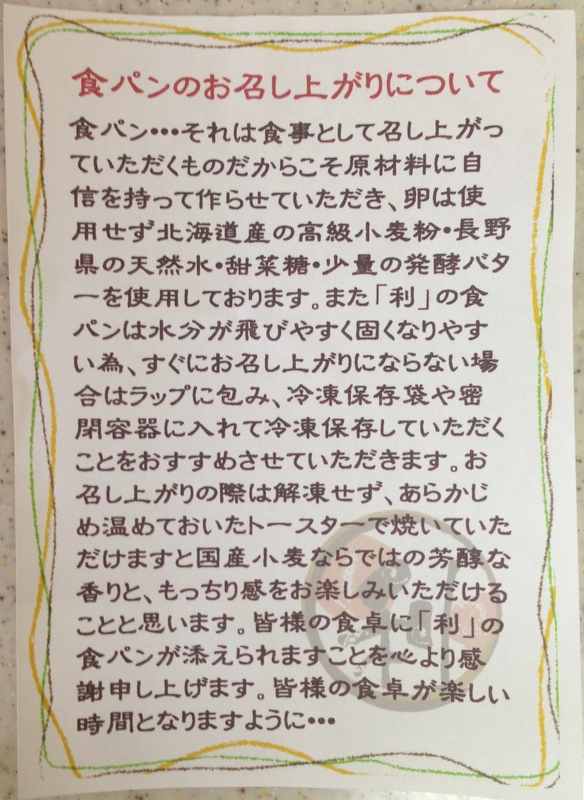 食パンのお召し上がりについて
食パン・・・それは食事として召し上がっ
ていただくものだからこそ原材料に自
信を持って作らせていただき、卵は使
用せず北海道産の高級小麦粉・長野
県の天然水・甜菜糖・少量の発酵バタ
ーを使用しております。また「利」の食
パンは水分が飛びやすく固くなりやす
い為、すぐにお召し上がりにならない場
合はラップに包み、冷凍保存袋や密
閉容器に入れて冷凍保存していただく
ことをおすすめさせていただきます。お
召し上がりの際は解凍せず、あらかじ
め温めておいたトースターで焼いていた
だけますと国産小麦ならではの芳醇な
香りと、もっちり感をお楽しみいただける
ことと思います。皆様の食卓に「利」の
食パンが添えられますことを心より感
謝申し上げます。皆様の食卓が楽しい
時間となりますように・・・